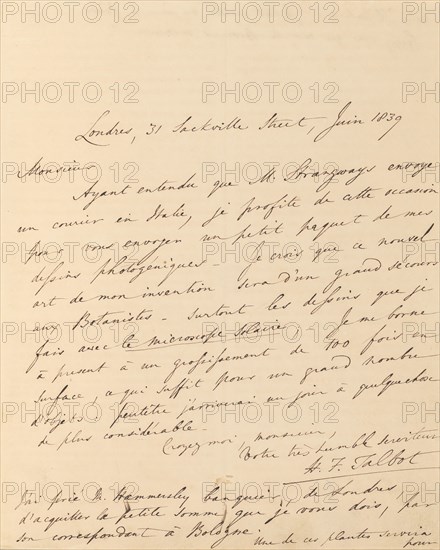 Londres, 31 Sackville Street, Juin 1839
Monsieur
Ayant entendu que M. Strangways envoye
un courier en Italie, je profite de cette occasion
pour vous envoyer un petit paquet de mes
dessins photogéniques - Je crois que ce nouvel
art de mon invention sera d'un grand secours
aux Botanistes - surtout les dessins que je
fais avec le microscope solaire, - Je me borne
à present à un grossissement de 400 fois en
surface, ce qui suffit pour un grand nombre
d'objets; peutêtre j'arriverai un jour à quelquechose
de plus considerable -
Croyez moi, monsieur,
Votre très humble serviteur
H. F. Talbot
J'ai prié M. Hammersley banquier, de Londres,
d'acquitter la petite somme que je vous dois, par
son correspondant à Bologne.
Une de ces plantes servira
pour